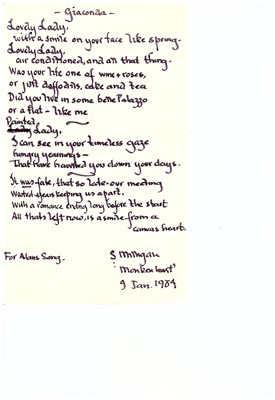 - Giaconda -
Lovely Lady.
with a smile on your face like spring.
Lovely Lady.
air conditioned, and all that thing.
Was your life one of wine & roses,
or just daffodils, cake and tea
Did you live in some belle Palazzo
or a flat - like me
Painted
Lady.
I can see in your timeless gaze
hungry yearnings -
That have haunted you down your days.
It was fate, that so late - our meeting
Wasted years keeping us apart.
With a romance ending long before the start
All thats left now, is a smile from a
canvas heart.
For Alans Song.
S Milligan
'Monkenhurst'
9 Jan. 1984